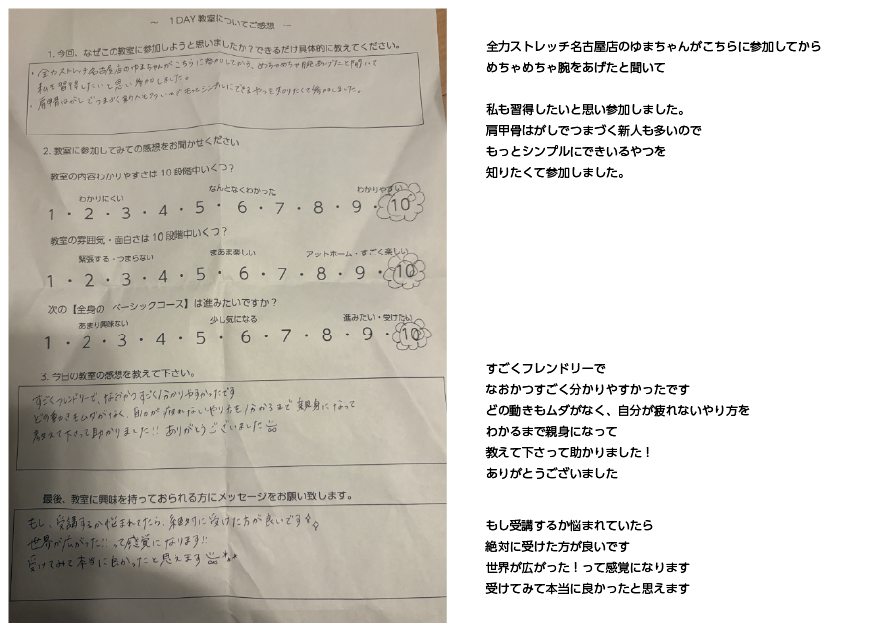 ～ 1DAY教室についてご感想 ～
1. 今回、なぜこの教室に参加しようと思いましたか？できるだけ具体的に教えてください。
・全力ストレッチ名古屋店のゆまちゃんがこちらに参加してから、めちゃめちゃ腕あげたと聞いて
私も習得したいと思い参加しました。
・肩甲骨はがしでつまづく新人も多いのでもっとシンプルにできるやつを知りたくて参加しました。
2. 教室に参加してみての感想をお聞かせください
教室の内容わかりやすさは10段階中いくつ？
わかりにくい なんとなくわかった わかりやすい
1・2・3・4・5・6・7・8・9・10
教室の雰囲気・面白さは10段階中いくつ？
緊張する・つまらない まあま楽しい アットホーム・すごく楽しい
1・2・3・4・5・6・7・8・9・10
次の【全身の ベーシックコース】は進みたいですか？
あまり興味ない 少し気になる 進みたい・受けたい
1・2・3・4・5・6・7・8・9・10
3. 今日の教室の感想を教えて下さい。
すごくフレンドリーで、なおかつすごく分かりやすかったです
どの動きもムダがなく、自分が疲れないやり方を分かるまで親身になって
教えて下さって助かりました!! ありがとうございました
最後、教室に興味を持っておられる方にメッセージをお願い致します。
もし、受講するか悩まれてたら、絶対に受けた方が良いです
世界が広がった!! って感覚になります!!
受けてみて本当に良かったと思えます
全力ストレッチ名古屋店のゆまちゃんがこちらに参加してから
めちゃめちゃ腕をあげたと聞いて
私も習得したいと思い参加しました。
肩甲骨はがしでつまづく新人も多いので
もっとシンプルにできいるやつを
知りたくて参加しました。
すごくフレンドリーで
なおかつすごく分かりやすかったです
どの動きもムダがなく、自分が疲れないやり方を
わかるまで親身になって
教えて下さって助かりました！
ありがとうございました
もし受講するか悩まれていたら
絶対に受けた方が良いです
世界が広がった！って感覚になります
受けてみて本当に良かったと思えます